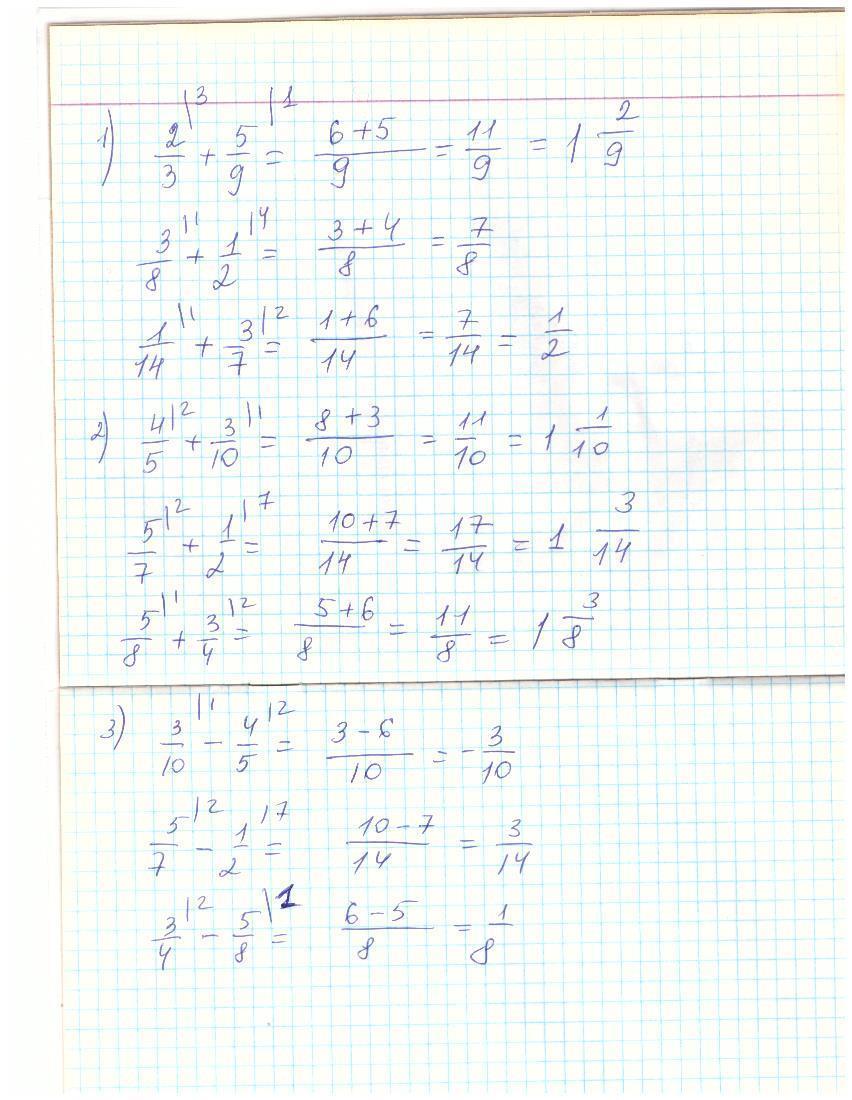 1) 2/3 |3 + 5/9 |1 = (6+5)/9 = 11/9 = 1 2/9
3/8 |1 + 1/2 |4 = (3+4)/8 = 7/8
1/14 |1 + 3/7 |2 = (1+6)/14 = 7/14 = 1/2
2) 4/5 |2 + 3/10 |1 = (8+3)/10 = 11/10 = 1 1/10
5/7 |2 + 1/2 |7 = (10+7)/14 = 17/14 = 1 3/14
5/8 |1 + 3/4 |2 = (5+6)/8 = 11/8 = 1 3/8
3) 3/10 |1 - 4/5 |2 = (3-6)/10 = -3/10
5/7 |2 - 1/2 |7 = (10-7)/14 = 3/14
3/4 |2 - 5/8 |1 = (6-5)/8 = 1/8